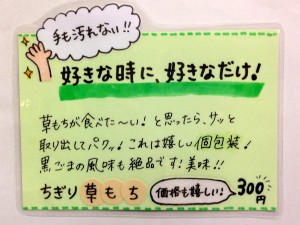 手も汚れない!!
好きな時に、好きなだけ!
草もちが食べた〜い! と思ったら、サッと
取り出してパクッ! これは嬉しい個包装!
黒ごまの風味も絶品です! 美味!!
ちぎり草もち
価格も嬉しい!
300円